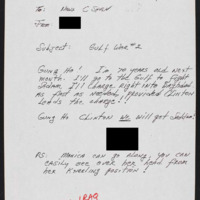 To:
From:
Subject: Gulf War #2
Gung Ho! I'm 70 years old next
month. I'll go to the Gulf to fight
Sadam, I'll charge right into Baghdad
as fast as necessary, provided Clinton
leads the charge!!
Gung Ho Clinton We will get Sadam!
PS: Monica can go along, you can
easily see over her head from
her kneeling position!
IRAQ